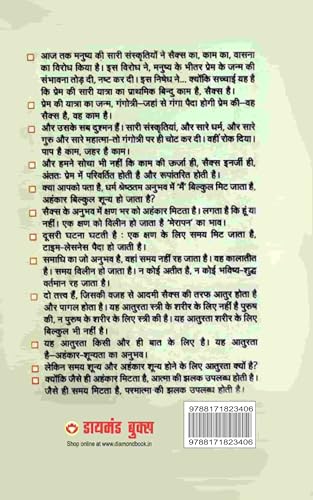 आज तक मनुष्य की सारी संस्कृतियों ने सैक्स का, काम का, वासना
का विरोध किया है। इस विरोध ने, मनुष्य के भीतर प्रेम के जन्म की
संभावना तोड़ दी, नष्ट कर दी। इस निषेध ने... क्योंकि सच्चाई यह है
कि प्रेम की सारी यात्रा का प्राथमिक बिन्दु काम है, सैक्स है।
प्रेम की यात्रा का जन्म, गंगोत्री–जहां से गंगा पैदा होगी प्रेम की–वह
सैक्स है, वह काम है।
और उसके सब दुश्मन हैं। सारी संस्कृतियां, और सारे धर्म, और सारे
गुरु और सारे महात्मा–तो गंगोत्री पर ही चोट कर दी। वहीं रोक दिया।
पाप है काम, जहर है काम।
और हमने सोचा भी नहीं कि काम की ऊर्जा ही, सैक्स इनर्जी ही,
अंततः प्रेम में परिवर्तित होती है और रूपांतरित होती है।
क्या आपको पता है, धर्म श्रेष्ठतम अनुभव में 'मैं' बिल्कुल मिट जाता है,
अहंकार बिल्कुल शून्य हो जाता है?
सैक्स के अनुभव में क्षण भर को अहंकार मिटता है। लगता है कि हूं या
नहीं। एक क्षण को विलीन हो जाता है 'मेरापन' का भाव।
दूसरी घटना घटती है : एक क्षण के लिए समय मिट जाता है,
टाइम-लेसनेस पैदा हो जाती है।
समाधि का जो अनुभव है, वहां समय नहीं रह जाता है। वह कालातीत
है। समय विलीन हो जाता है। न कोई अतीत है, न कोई भविष्य–शुद्ध
वर्तमान रह जाता है।
दो तत्त्व हैं, जिसकी वजह से आदमी सैक्स की तरफ आतुर होता है
और पागल होता है। यह आतुरता स्त्री के शरीर के लिए नहीं है पुरुष
की, न पुरुष के शरीर के लिए स्त्री की है। यह आतुरता शरीर के लिए
बिल्कुल भी नहीं है।
यह आतुरता किसी और ही बात के लिए है। यह आतुरता
है–अहंकार-शून्यता का अनुभव।
लेकिन समय शून्य और अहंकार शून्य होने के लिए आतुरता क्यों है?
क्योंकि जैसे ही अहंकार मिटता है, आत्मा की झलक उपलब्ध होती है।
जैसे ही समय मिटता है, परमात्मा की झलक उपलब्ध होती है।
डायमंड बुक्स
Shop online at www.diamondbook.in
9788171823406
9788171823406